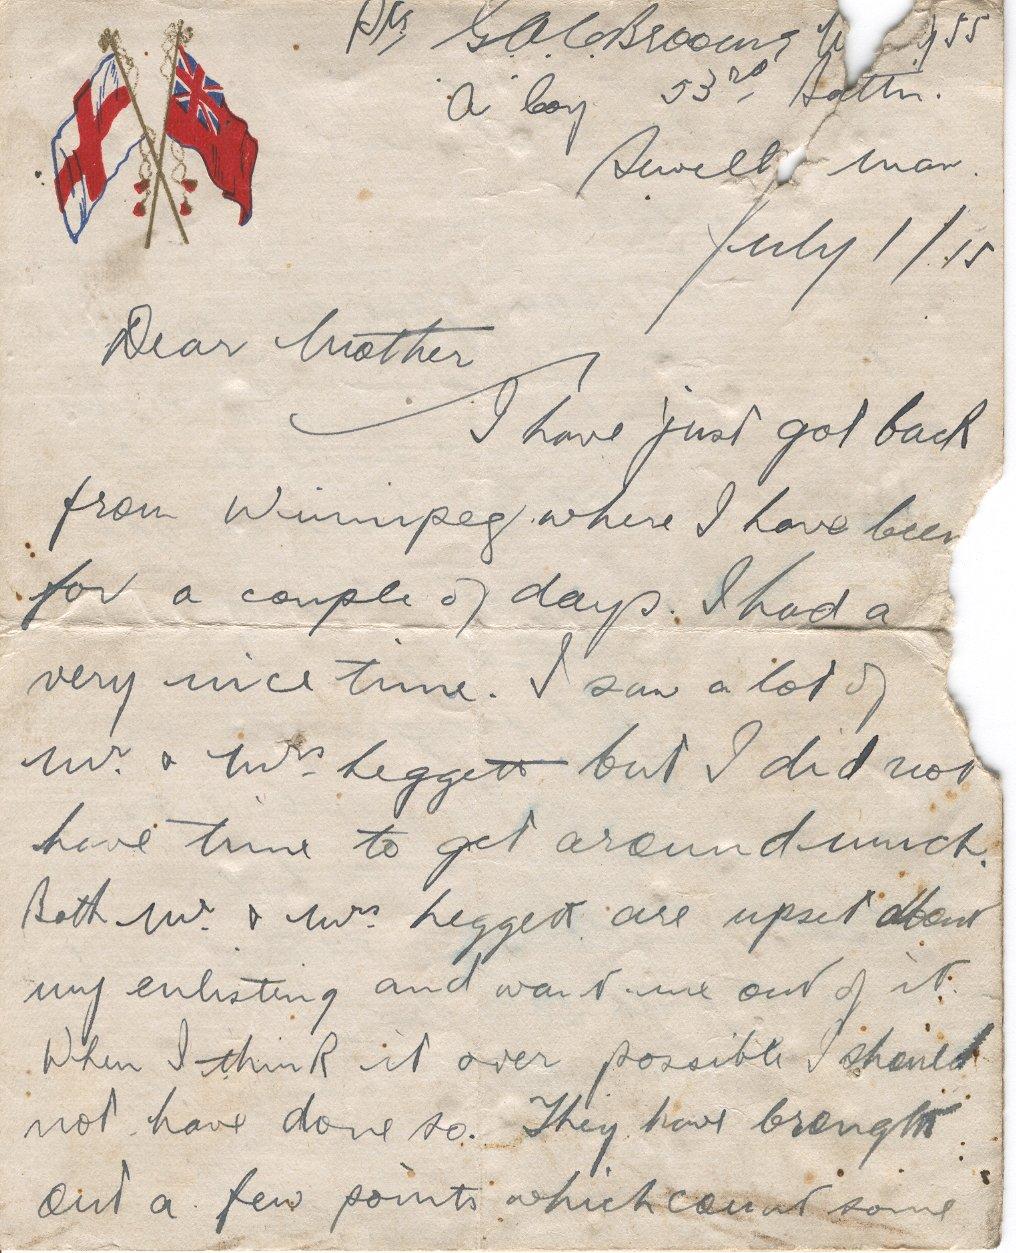 Pte G A C Broome 55
A Coy 53rd Battn.
Sewell Man.
July 1/15
Dear Mother
I have just got back
from Winnipeg where I have been
for a couple of days. I had a
very nice time. I saw a lot of
Mr. & Mrs. Leggett but I did not
have time to get around much.
Both Mr. & Mrs. Leggett are upset about
my enlisting and want me out of it.
When I think it over possible I should
not have done so. They have brought
out a few points which count some